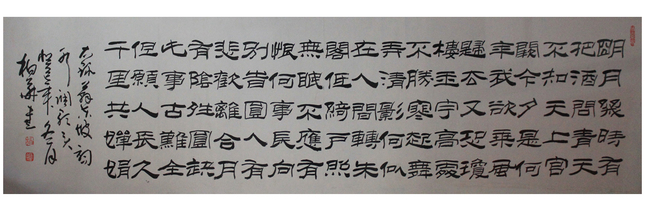 明月幾時有
把酒問青天
不知天上宮
闕今夕是何
年我欲乘風
歸去又恐瓊
樓玉宇高處
不勝寒起舞
弄清影何似
在人間轉朱
閣低綺戶照
無眠不應有
恨何事長向
別旹圓人有
悲歡離合月
有陰晴圓缺
此事古難全
但願人長久
千里共嬋娟
錄蘇東坡詞
水調歌頭